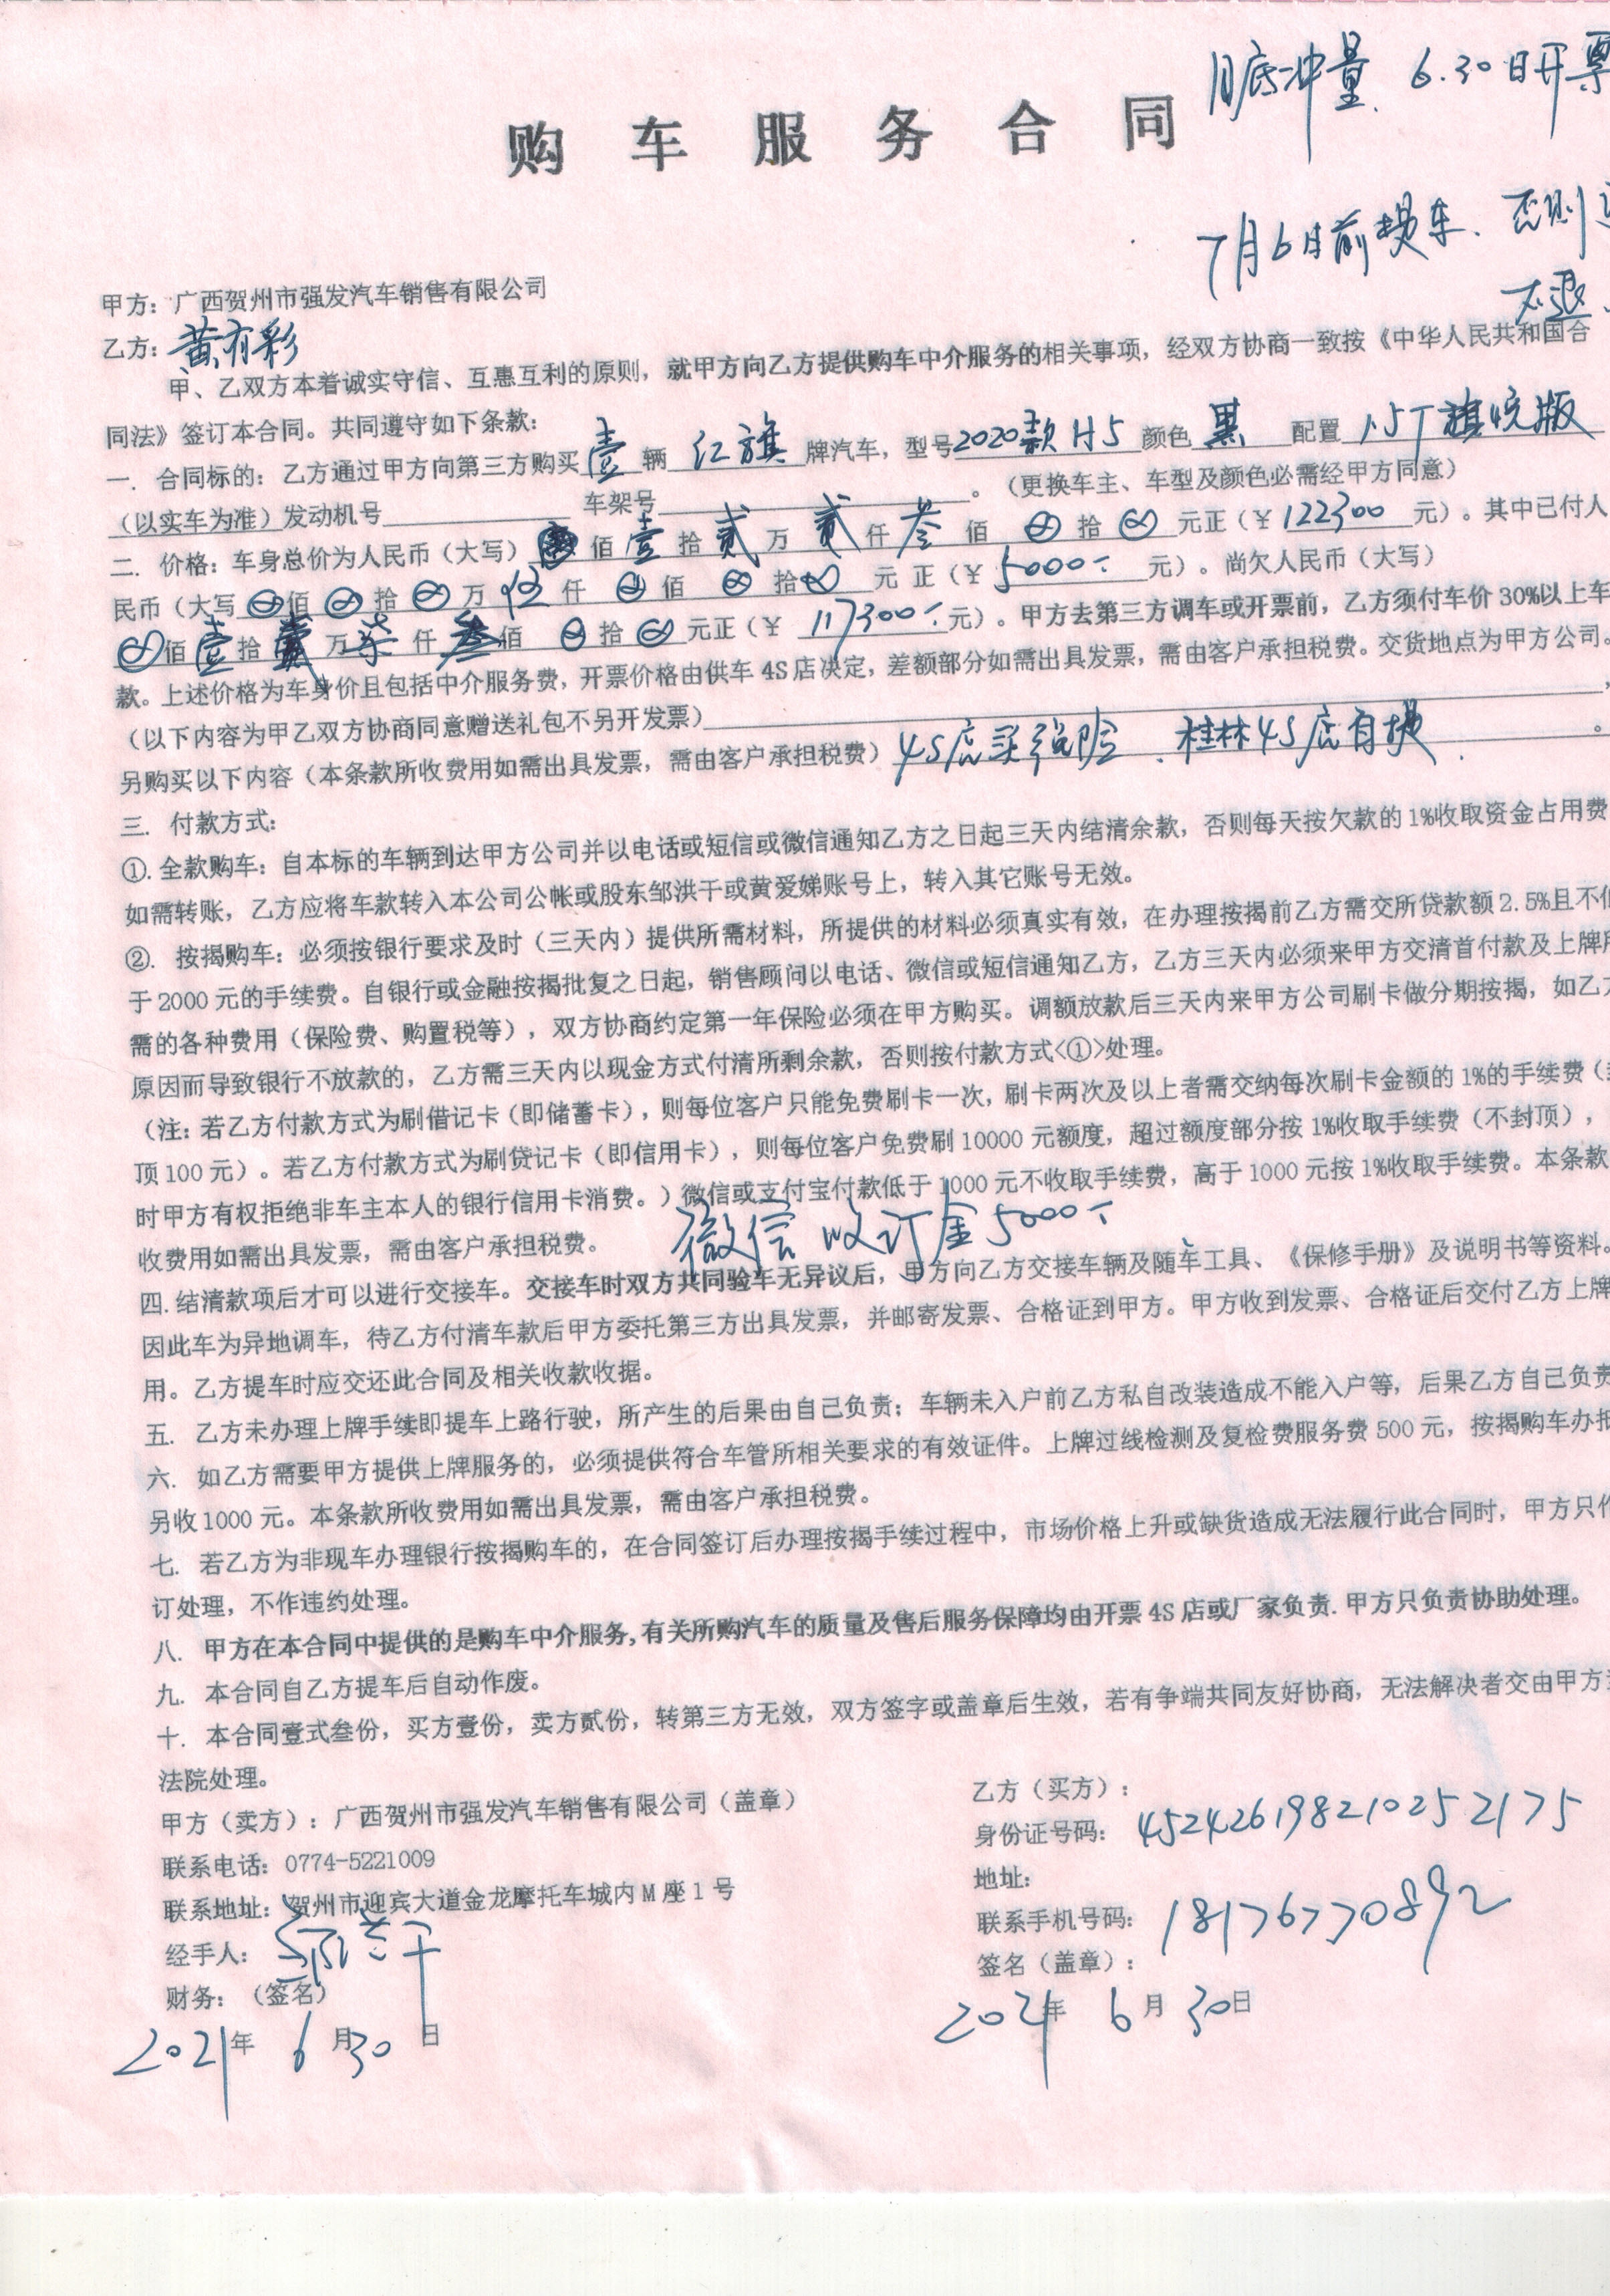 月底冲量、6.30日开票
购车服务合同
7月6日前提车、否则
不退
甲方：广西贺州市强发汽车销售有限公司
乙方：黄有彩
甲、乙双方本着诚实守信、互惠互利的原则，就甲方向乙方提供购车中介服务的相关事项，经双方协商一致按《中华人民共和国合
同法》签订本合同。共同遵守如下条款：
一. 合同标的：乙方通过甲方向第三方购买壹辆红旗牌汽车，型号2020款H5颜色黑配置1.5T旗悦版
（以实车为准）发动机号 车架号 。（更换车主、车型及颜色必需经甲方同意）
二. 价格：车身总价为人民币（大写） 佰壹拾贰万贰仟叁佰⊗拾⊗元正（￥122300元）。其中已付人
民币（大写⊗佰⊗拾⊗万伍仟⊗佰⊗拾⊗元正（￥5000元）。尚欠人民币（大写）
⊗佰壹拾壹万柒仟叁佰⊗拾⊗元正（￥117300元）。甲方去第三方调车或开票前，乙方须付车价30%以上车
款。上述价格为车身价且包括中介服务费，开票价格由供车4S店决定，差额部分如需出具发票，需由客户承担税费。交货地点为甲方公司。
（以下内容为甲乙双方协商同意赠送礼包不另开发票） ，
另购买以下内容（本条款所收费用如需出具发票，需由客户承担税费）4S店买保险、桂林4S店自提 。
三. 付款方式：
①. 全款购车：自本标的车辆到达甲方公司并以电话或短信或微信通知乙方之日起三天内结清余款，否则每天按欠款的1%收取资金占用费
如需转账，乙方应将车款转入本公司公帐或股东邹洪干或黄爱娣账号上，转入其它账号无效。
②. 按揭购车：必须按银行要求及时（三天内）提供所需材料，所提供的材料必须真实有效，在办理按揭前乙方需交所贷款额2.5%且不低
于2000元的手续费。自银行或金融按揭批复之日起，销售顾问以电话、微信或短信通知乙方，乙方三天内必须来甲方交清首付款及上牌所
需的各种费用（保险费、购置税等），双方协商约定第一年保险必须在甲方购买。调额放款后三天内来甲方公司刷卡做分期按揭，如乙方
原因而导致银行不放款的，乙方需三天内以现金方式付清所剩余款，否则按付款方式<①>处理。
（注：若乙方付款方式为刷借记卡（即储蓄卡），则每位客户只能免费刷卡一次，刷卡两次及以上者需交纳每次刷卡金额的1%的手续费（封
顶100元）。若乙方付款方式为刷贷记卡（即信用卡），则每位客户免费刷10000元额度，超过额度部分按1%收取手续费（不封顶），
时甲方有权拒绝非车主本人的银行信用卡消费。）微信或支付宝付款低于1000元不收取手续费，高于1000元按1%收取手续费。本条款
收费用如需出具发票，需由客户承担税费。 微信收订金5000
四. 结清款项后才可以进行交接车。交接车时双方共同验车无异议后，甲方向乙方交接车辆及随车工具、《保修手册》及说明书等资料。
因此车为异地调车，待乙方付清车款后甲方委托第三方出具发票，并邮寄发票、合格证到甲方。甲方收到发票、合格证后交付乙方上牌
用。乙方提车时应交还此合同及相关收款收据。
五. 乙方未办理上牌手续即提车上路行驶，所产生的后果由自己负责；车辆未入户前乙方私自改装造成不能入户等，后果乙方自己负责
六. 如乙方需要甲方提供上牌服务的，必须提供符合车管所相关要求的有效证件。上牌过线检测及复检费服务费500元，按揭购车办抵
另收1000元。本条款所收费用如需出具发票，需由客户承担税费。
七. 若乙方为非现车办理银行按揭购车的，在合同签订后办理按揭手续过程中，市场价格上升或缺货造成无法履行此合同时，甲方只作
订处理，不作违约处理。
八. 甲方在本合同中提供的是购车中介服务，有关所购汽车的质量及售后服务保障均由开票4S店或厂家负责．甲方只负责协助处理。
九. 本合同自乙方提车后自动作废。
十. 本合同壹式叁份，买方壹份，卖方贰份，转第三方无效，双方签字或盖章后生效，若有争端共同友好协商，无法解决者交由甲方
法院处理。
甲方（卖方）：广西贺州市强发汽车销售有限公司（盖章）
联系电话：0774-5221009
联系地址：贺州市迎宾大道金龙摩托车城内M座1号
经手人：
财务：（签名）
2021年6月30日
乙方（买方）：
身份证号码：452426198210252175
地址：
联系手机号码：18176770892
签名（盖章）：
2021年6月30日